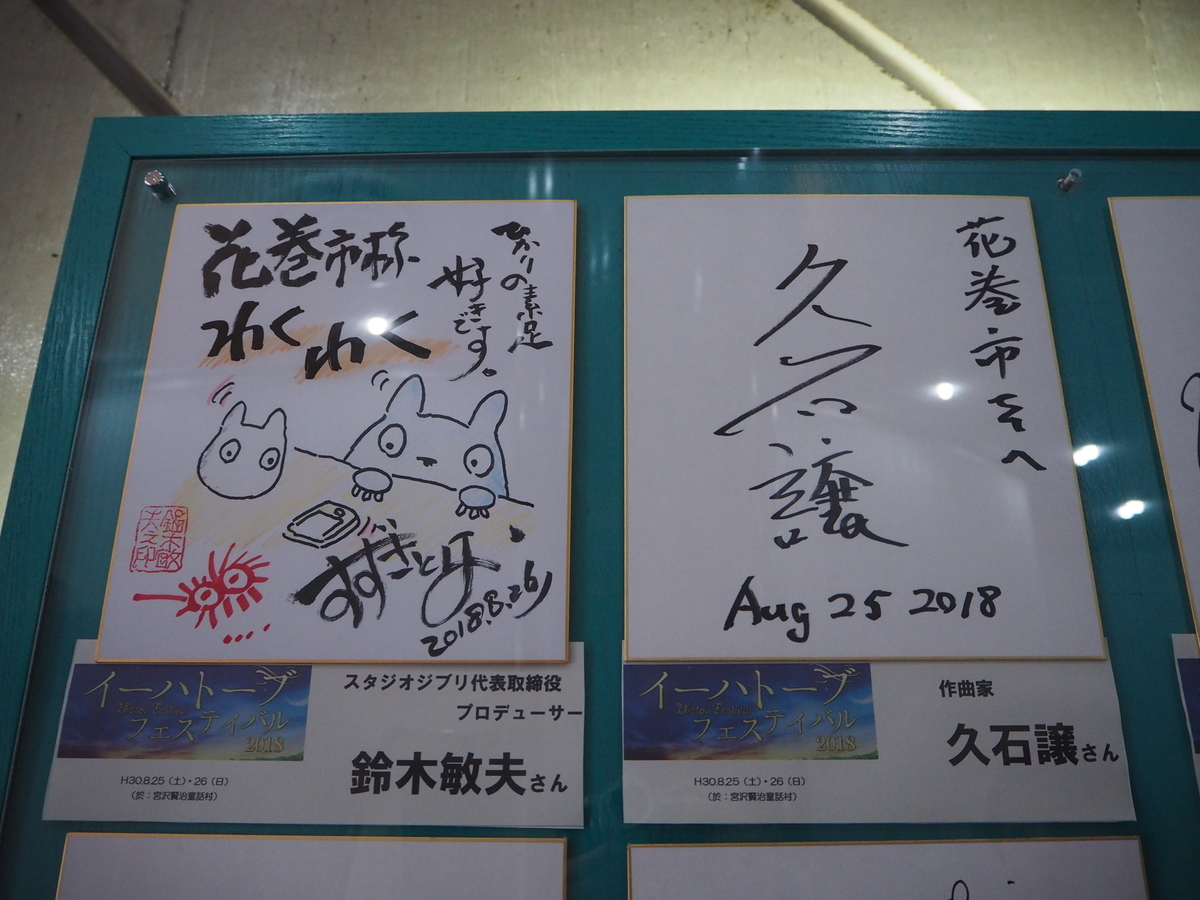 花巻市様
わくわく
ひかりの素足
好きです。
すずきとしお
2018.8.26
鈴木敏夫之印
花巻市さんへ
久石譲
Aug 25 2018
イーハトーブ
フェスティバル
2018
H30.8.25（土）・26（日）
（於：宮沢賢治童話村）
スタジオジブリ代表取締役
プロデューサー
鈴木敏夫さん
イーハトーブ
フェスティバル
2018
H30.8.25（土）・26（日）
（於：宮沢賢治童話村）
作曲家
久石譲さん